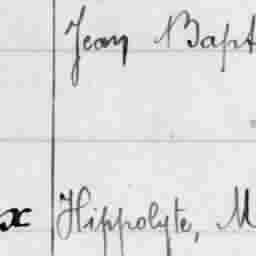 Jean Bapt
x Hippolyte, M